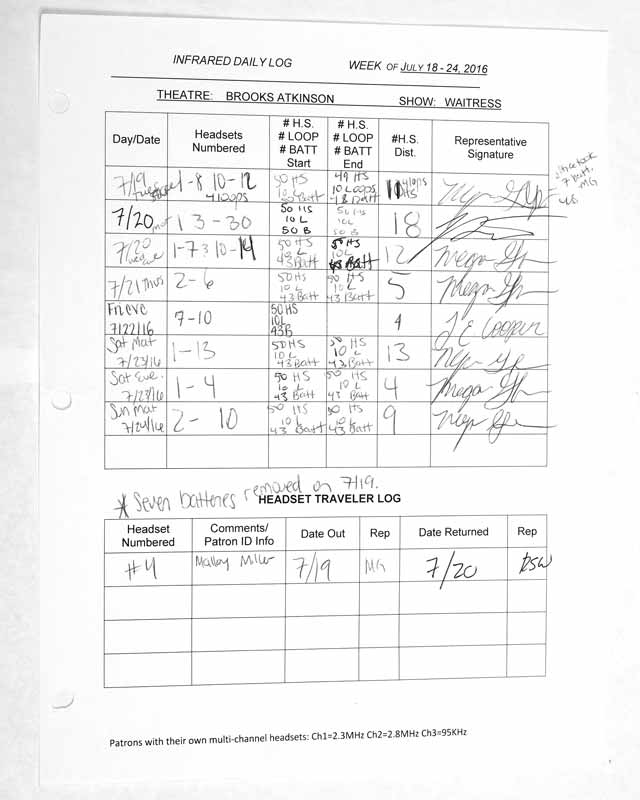 INFRARED DAILY LOG WEEK OF JULY 18 - 24, 2016
THEATRE: BROOKS ATKINSON SHOW: WAITRESS
Day/Date Headsets Numbered # H.S. # LOOP # BATT Start # H.S. # LOOP # BATT End #H.S. Dist. Representative Signature
7/19 1-8 10-12 4 loops 50 HS 10 Loops 50 Batt 49 HS 10 Loops 48 Batt 4 loops HS
7 Batt. MG
7/20 mat 13-30 50 HS 10 L 50 B 50 HS 10 L 50 B 18
7/20 eve 1-7 10-14 50 HS 10 L 43 Batt 50 HS 10 L 43 Batt 12 Megan
7/21 Thurs 2-6 50 HS 10 L 43 Batt 50 HS 10 L 43 Batt 5 Megan
Fri eve 7/22/16 7-10 50 HS 10L 43B 4 J E Cooper
Sat Mat 7/23/16 1-13 50 HS 10 L 43 Batt 50 HS 10 L 43 Batt 13
Sat Eve. 7/23/16 1-4 50 HS 10 L 43 Batt 50 HS 10 L 43 Batt 4 Megan
Sun Mat 7/24/16 2-10 50 HS 10 L 43 Batt 50 HS 10 L 43 Batt 9
* Seven batteries removed on 7/19.
HEADSET TRAVELER LOG
Headset Numbered Comments/ Patron ID Info Date Out Rep Date Returned Rep
#4 Mallory Miller 7/19 MG 7/20 RSW
Patrons with their own multi-channel headsets: Ch1=2.3MHz Ch2=2.8MHz Ch3=95KHz